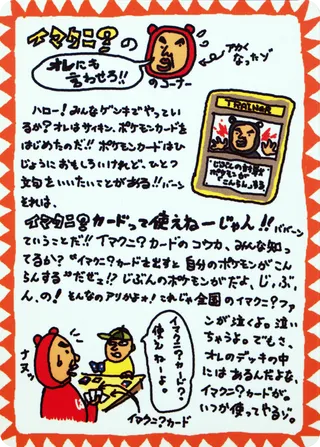 イマクニ?の
オレにも
言わせろ!!
のコーナー
アカく
なったゾ
ハロー!みんなゲンキでやってい
るか?オレはサイキン、ポケモンカードを
はじめたのだ!!ポケモンカードはひ
じょうにおもしろいけれど、ひとつ
文句をいいたいことがある!!バーン
それは、
TRAINER
イマクニ?カードって使えねーじゃん!!ババーン
ていうことだ!!イマクニ?カードのコウカ、みんな知っ
てるか?"イマクニ?カードを出すと自分のポケモンがこん
らんする"だぜっ!?じぶんのポケモンがだよ、じ,ぶ,
ん,の!そんなのアリかよォ!これじゃ全国のイマクニ?ファ
ンが泣くよ。泣い
ちゃうよ。でもさ、
オレのデッキの中
にはあるんだよな、
イマクニ?カードが。
いつか使ってやるゾ。
イマクニ?カード?
使えねーよ。
ナヌッ
イマクニ?カード